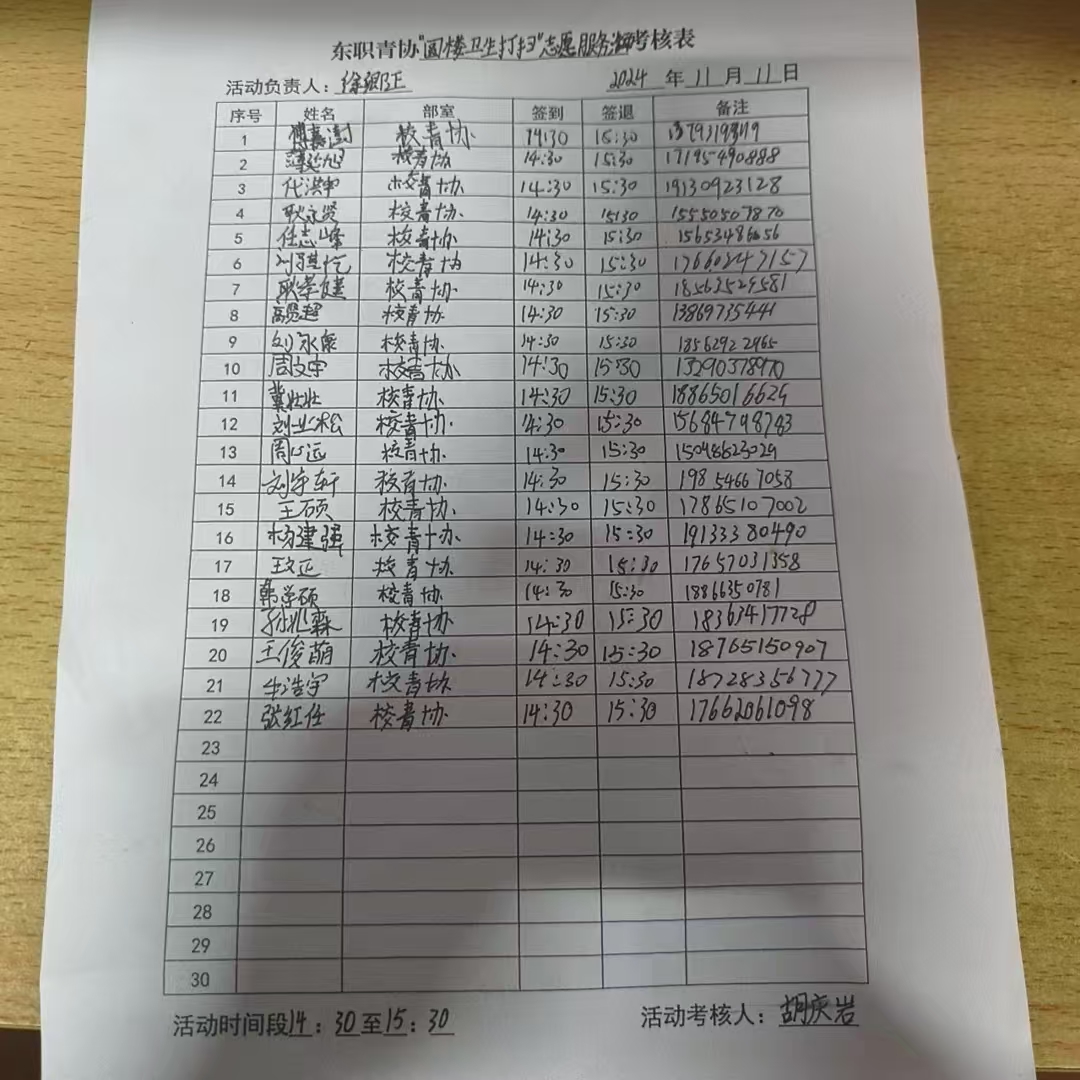 东职青协"图楼卫生打扫"志愿服务活动考核表
活动负责人: 2024 年 11 月 11 日
序号 姓名 部室 签到 签退 备注
1 校青协 14:30 15:30
2 校青协 14:30 15:30 17195490888
3 代洪申 校青协 14:30 15:30 19130923128
4 耿永贤 校青协 14:30 15:30 15550507870
5 任志峰 校青协 14:30 15:30 15653486656
6 校青协 14:30 15:30 17660247157
7 耿孝健 校青协 14:30 15:30 18563529581
8 校青协 14:30 15:30 13869735441
9 刘永康 校青协 14:30 15:30 18562922965
10 周文宇 校青协 14:30 15:30 13290378970
11 冀壮壮 校青协 14:30 15:30 18865016625
12 刘业松 校青协 14:30 15:30 15684798783
13 周心远 校青协 14:30 15:30 15048623029
14 刘宇轩 校青协 14:30 15:30 19854667058
15 王硕 校青协 14:30 15:30 17865107002
16 杨建强 校青协 14:30 15:30 19133380490
17 王文正 校青协 14:30 15:30 17657031358
18 韩学硕 校青协 14:30 15:30 1886350781
19 孙兆霖 校青协 14:30 15:30 18363417728
20 王俊萌 校青协 14:30 15:30 18765150907
21 牛浩宇 校青协 14:30 15:30 18728356777
22 张红任 校青协 14:30 15:30 17662061098
23
24
25
26
27
28
29
30
活动时间段14:30至15:30 活动考核人: 胡庆岩